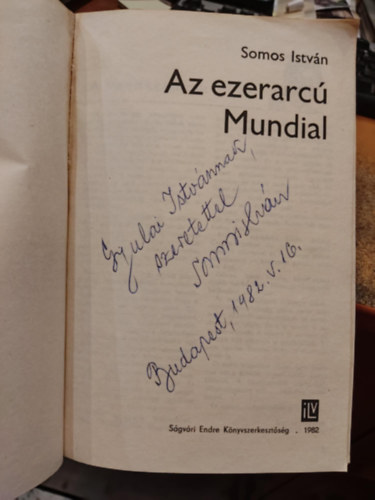 Somos István
Az ezerarcú
Mundial
Gyulai Istvánnak,
szeretettel
Somos István
Budapest, 1982. V. 16.
ILV
Ságvári Endre Könyvszerkesztőség . 1982